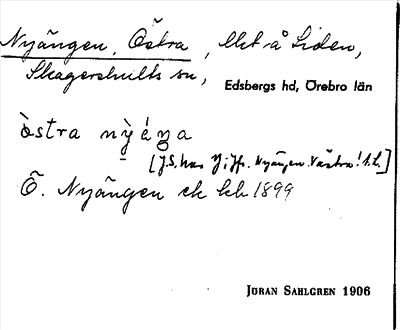 Nyängen, Östra, lht å Liden,
Skagershults sn,
Edsbergs hd, Örebro län
östra nỳéŋa
[J.S. har y; jfr. Nyängen Västra!
Ö. Nyängen ek kb 1899
JÖRAN SAHLGREN 1906